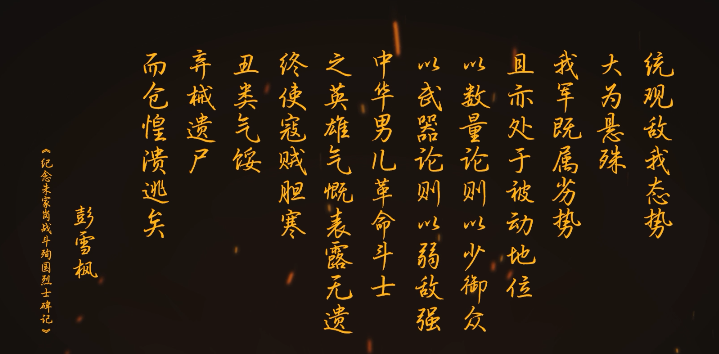 统观敌我态势
大为悬殊
我军既属劣势
且亦处于被动地位
以数量论则以少御众
以武器论则以弱敌强
中华男儿革命斗士
之英雄气慨表露无遗
终使寇贼胆寒
丑类气馁
弃械遗尸
而仓惶溃逃矣
彭雪枫
《纪念朱家岗战斗殉国烈士碑记》